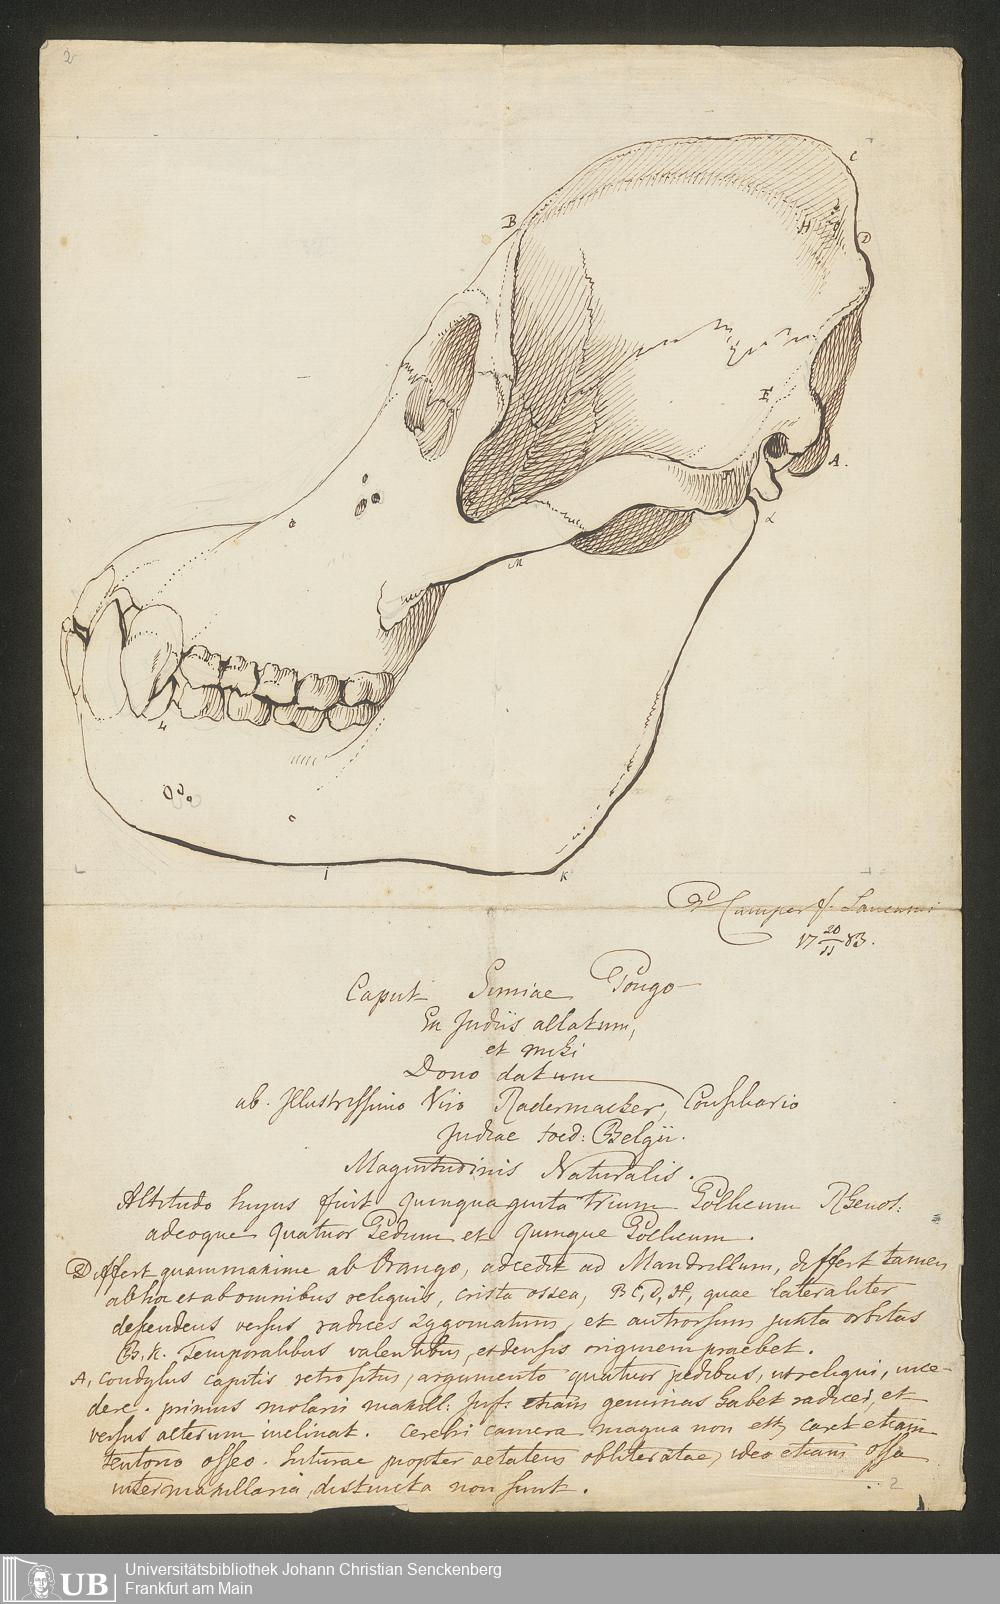 2
B
C
D
H
F
A.
L
M
L
I
K
P Camper f.
17 20/11 83.
Caput Simiae Pongo
Ex Indiis allatum,
et mihi
Dono datum
ab Illustrissimo Viro Radermacher, Consiliario
Indiae foed: Belgii.
Magnitudinis Naturalis.
Altitudo hujus fuit quinquaginta trium Pollicum Rhenol:
adeoque quatuor Pedum et quinque Pollicum.
Differt quam maxime ab Orango, accedit ad Mandrillum, differt tamen
ab hoc et ab omnibus reliquis, crista ossea, B C, D, H, quae lateraliter
dependens versus radices zygomatum, et antrorsum juxta orbitas
B, K. Temporalibus valentibus, et densis originem praebet.
A, condylus capitis retrositus, argumento quatuor pedibus, ut reliqui, ince-
dere. primus molaris maxill: Inf: etiam geminas habet radices, et
versus alterum inclinat. Cerebri camera magna non est, caret etiam
tentorio osseo. Suturae propter aetatem obliteratae, ideo etiam ossa
intermaxillaria distincta non sunt.
2
UB
Universitätsbibliothek Johann Christian Senckenberg
Frankfurt am Main